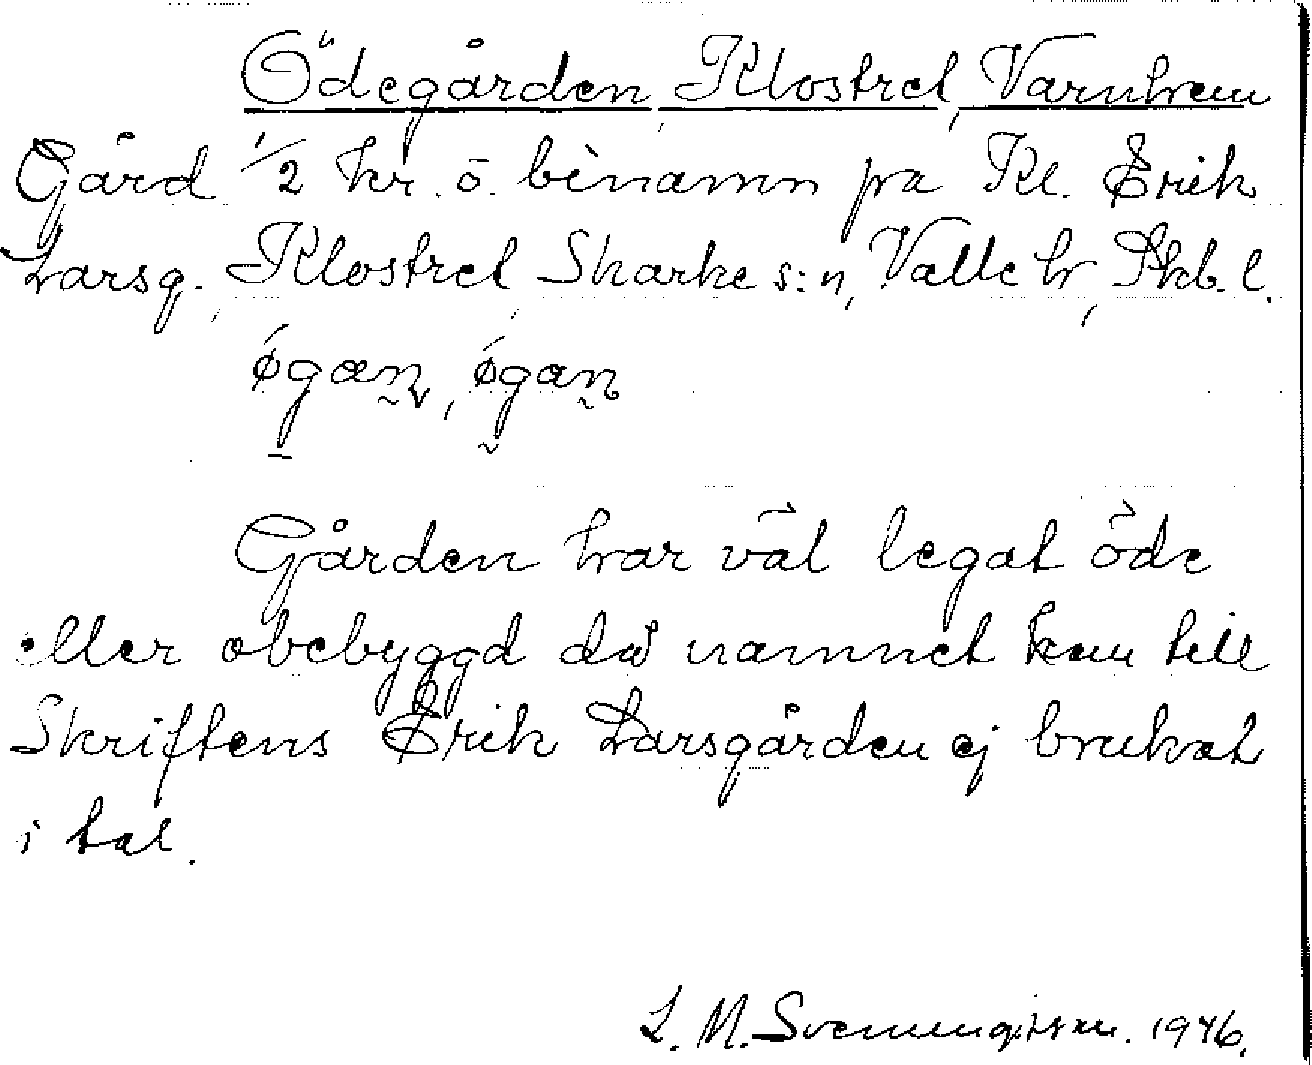 Ödegården, Klostret, Varnhem
Gård 1/2 kr. ö. binamn på Kl. Erik
Larsg., Klostret, Skarke s:n, Valle hr, Skb. l.
ǿgæn, ǿgan
Gården har väl legat öde
eller obebyggd då namnet kom till
Skriftens Erik Larsgården ej brukat
i tal.
L. M. Svenungsson. 1946.